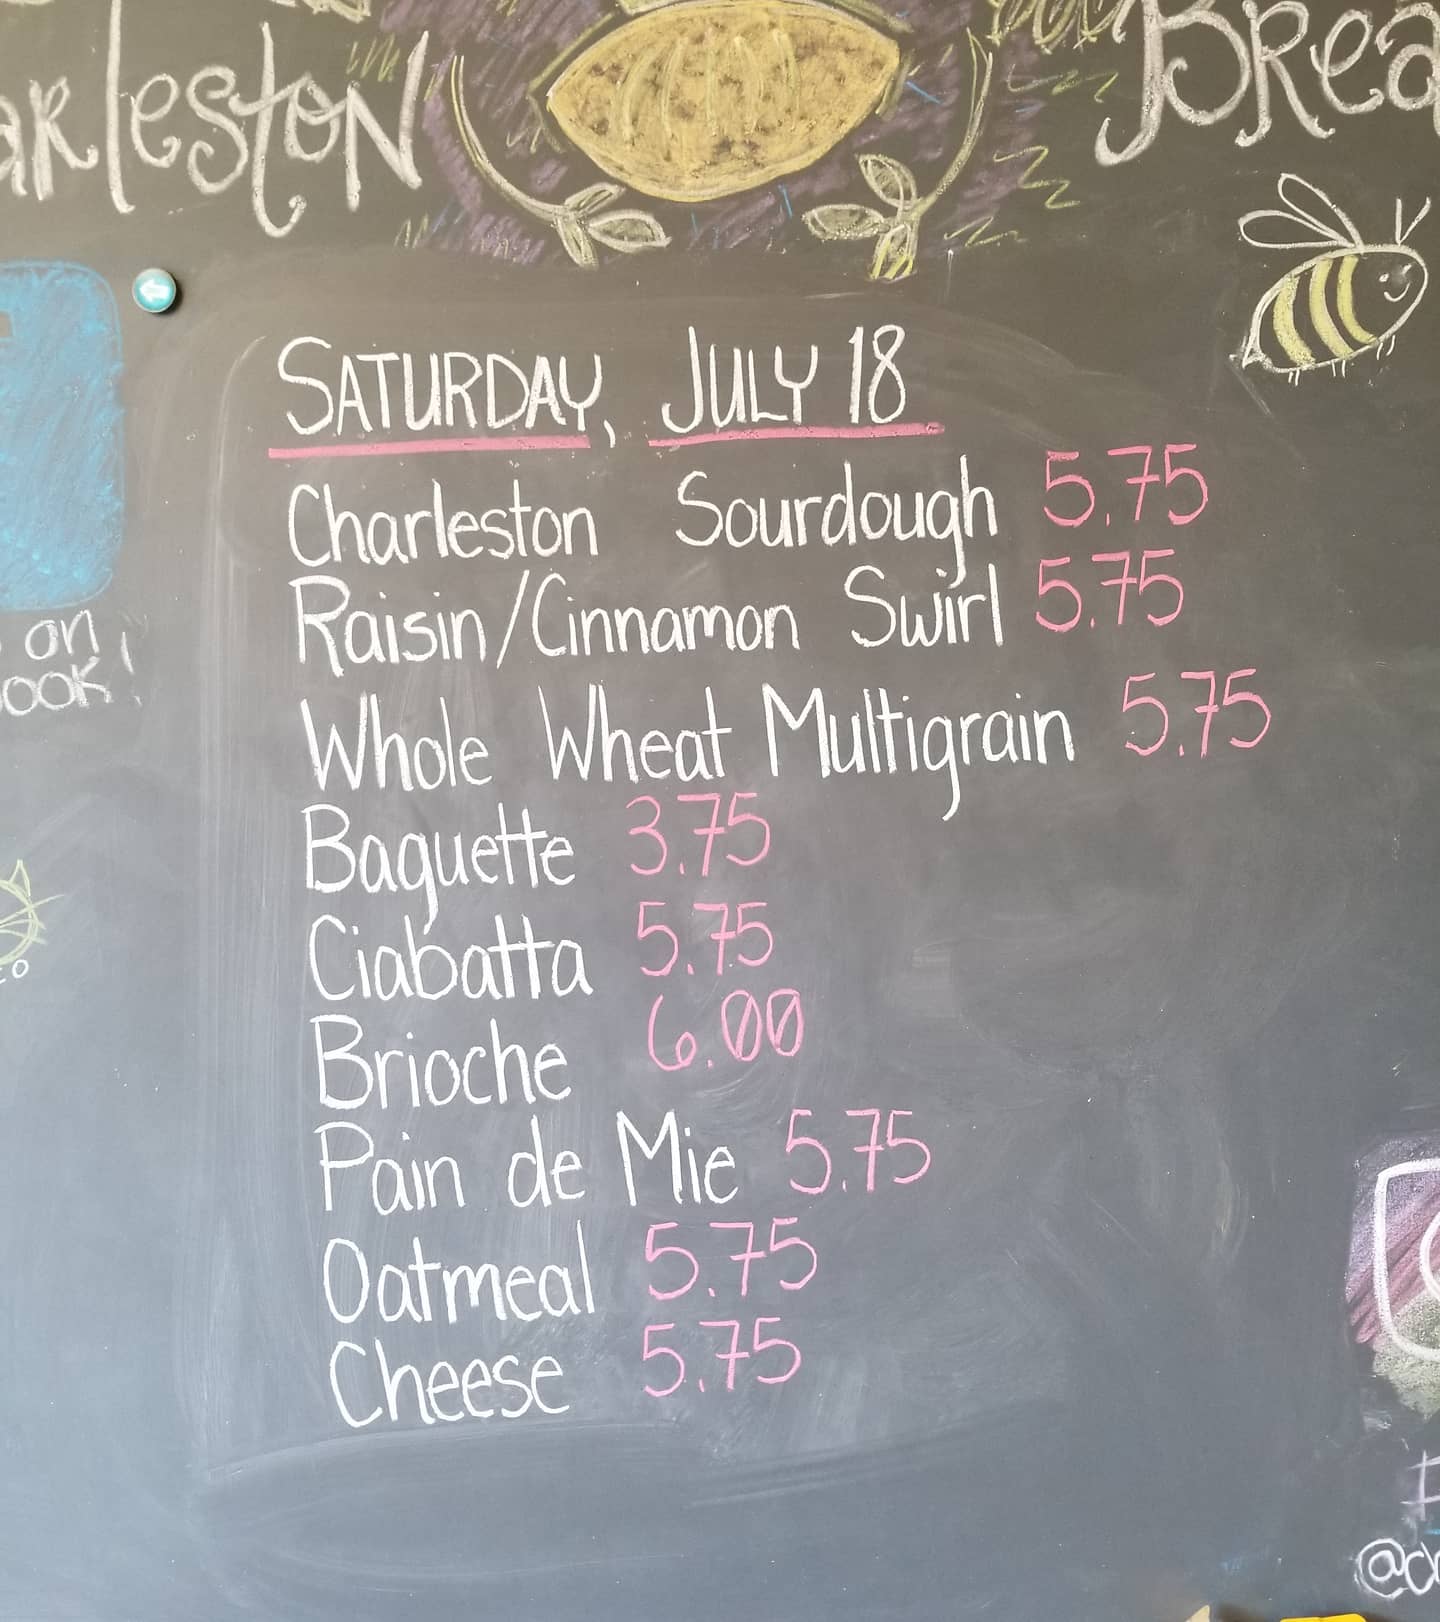 SATURDAY, JULY 18
Charleston Sourdough 5.75
Raisin/Cinnamon Swirl 5.75
Whole Wheat Multigrain 5.75
Baguette 3.75
Ciabatta 5.75
Brioche 6.00
Pain de Mie 5.75
Oatmeal 5.75
Cheese 5.75
on